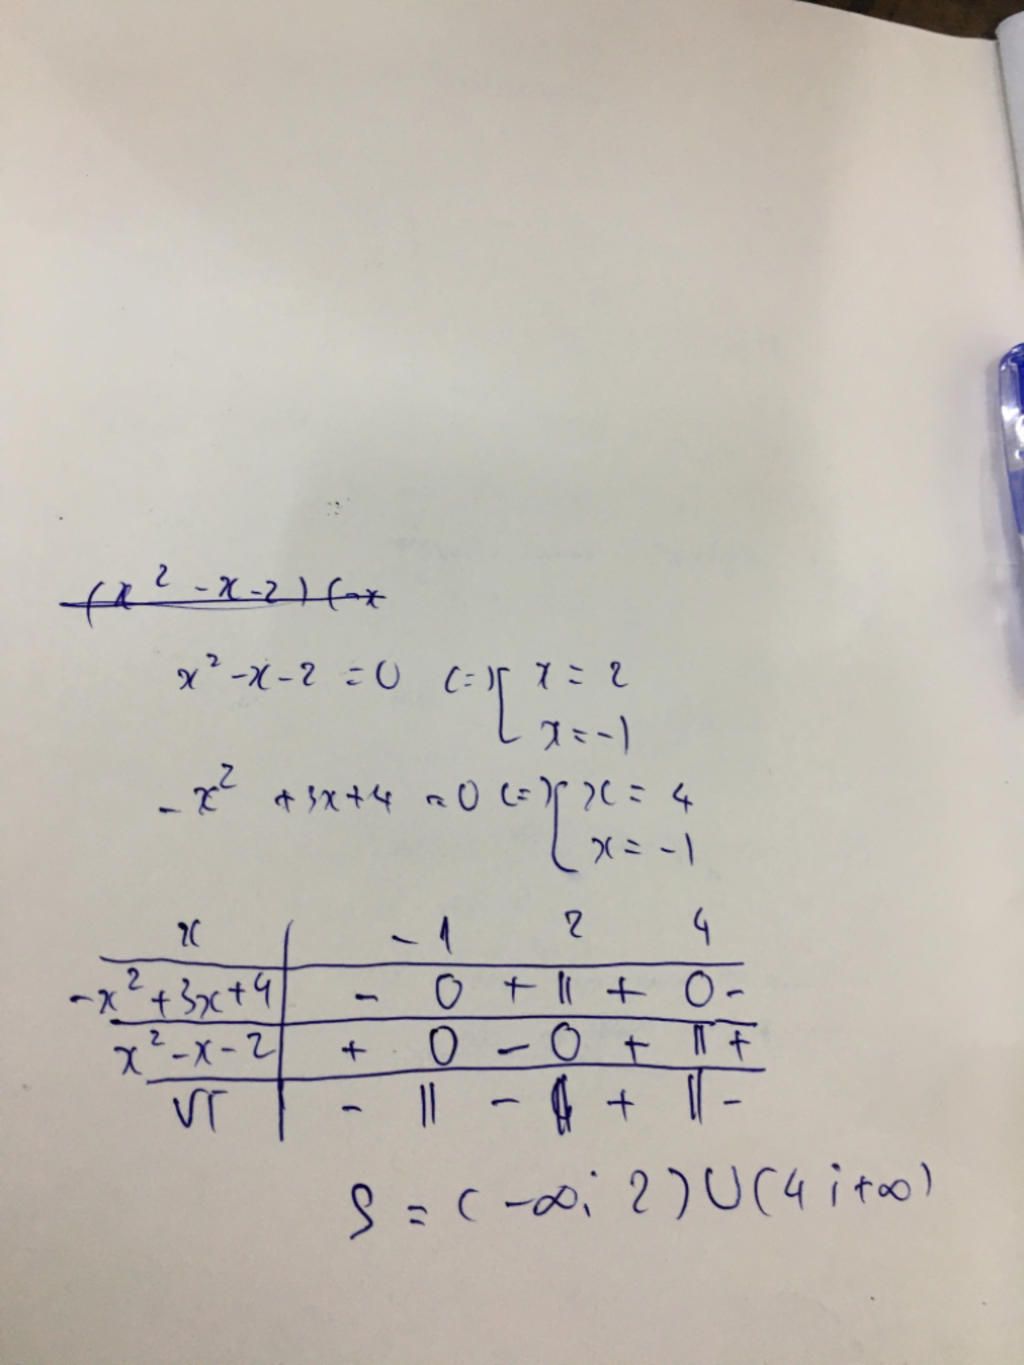 (x² -x-2) (-x
x² -x-2 =0 (=)[ x = 2
x=-1
-x² +3x+4 =0 (=)[ x = 4
x = -1
x | -1 2 4
-x²+3x+4 | - 0 + || + 0 -
x²-x-2 | + 0 - 0 + || +
VT | - || - || + || -
S = (-∞; 2) ∪ (4; +∞)